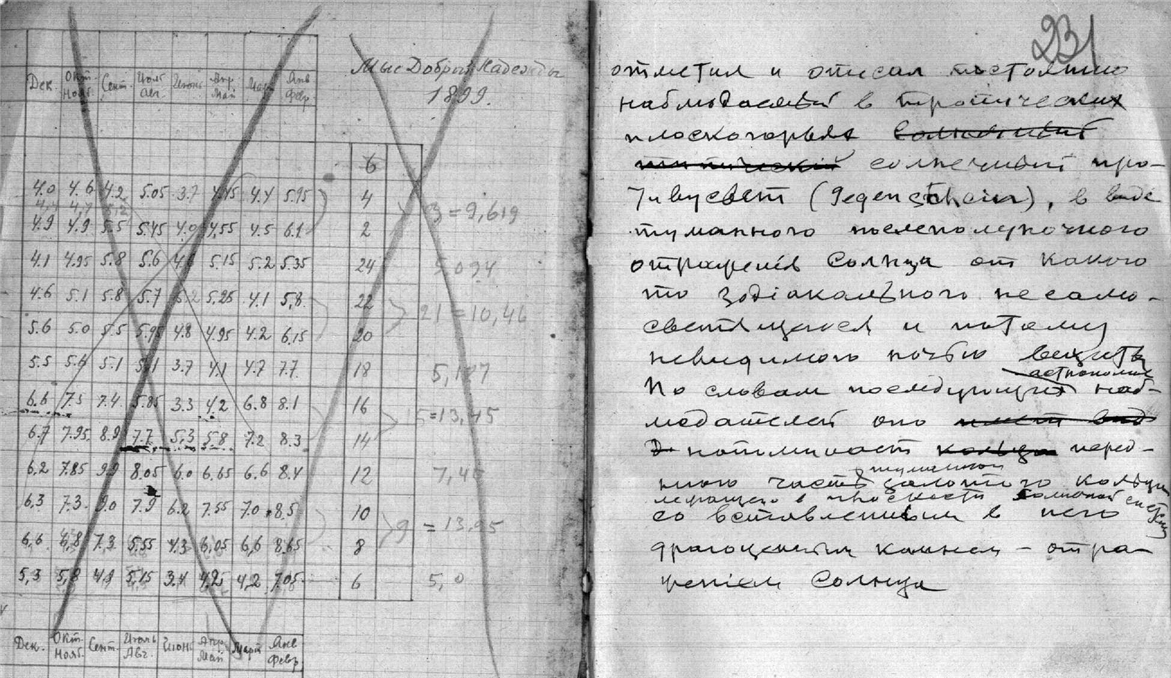 Мыс Доброй Надежды
1899.
Дек. Окт. Нояб. Сент. Июль Авг. Июнь Апр. Май Март Янв Февр.
6
4.0 4.6 4.2 5.05 3.7 4.15 4.4 5.95 4
4.9 4.9 5.5 5.45 4.0 4,55 4.5 6.1 2
3=9,619
4.1 4.95 5.8 5.6 5.15 5.2 5.35 24
5,094
4.6 5.1 5.8 5.7 5.25 4.1 5,8 22
21=10,46
5.6 5.0 5.5 5.95 4.8 4.95 4.2 6,15 20
5.5 5.6 5.1 3.7 4.1 4.7 7.7 18
6.6 7.5 7.4 5.85 3.3 4.2 6.8 8.1 16
15=13,45
6.7 7.95 8.9 7.7 5,3 5,8 7.2 8.3 14
6.2 7.85 9.9 8.05 6.0 6.65 6.6 8.4 12
7,4
6,3 7.3 9.0 7.9 6.2 7.55 7.0 8,5 10
9 = 13.95
6,6 6,8 7.3 5.55 4.3 6,05 6,6 8,65 8
5,3 5,8 4.9 5,15 3.4 4,25 4,2 7.05 6
5,0
Дек. Окт. Нояб. Сент. Июль Авг. Июнь Апр. Май Март Янв Февр.
231
отметил и описал постоянно
наблюдаемый в тропических
плоскогорьях
солнечный про-
тивусвет (Gegenschein), в виде
туманного послеполуночного
отражения Солнца от какого
то зодіакального несамо-
светящегося и потому
невидимого ночью вещества
астрономов
По словам последующих наб-
людателей оно имеет вид
напоминает кольца перед-
туманного
него части золотого кольца
лежащего в плоскости солнечной системы
со вставленным в него
драгоценным камнем – отра-
женіем Солнца